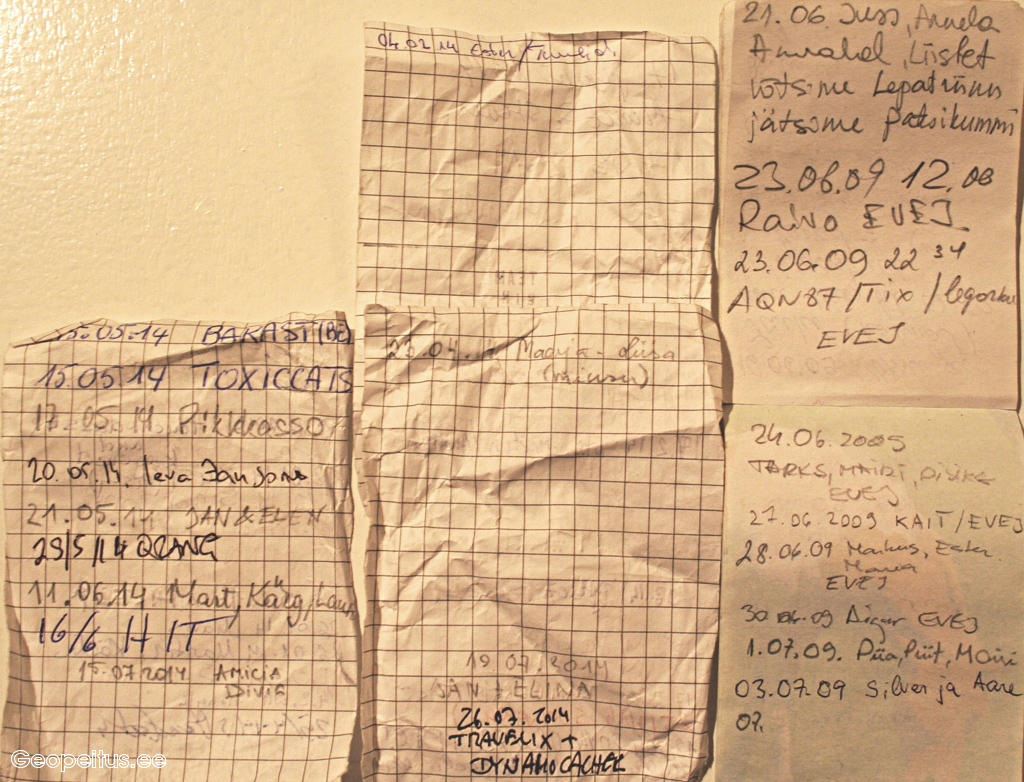 15.05.14 BAKAST(BC)
15.05.14 TOXICCATS
17.05.14 Pikkasso
20.05.14 Ieva Jansons
21.05.14 JAN & ELEN
29/5/14
11.06.14 Mart, Kärg,
16/6 HIT
15.07.2014 AMICIA
DIVIA
04.02.14 Ester
Maarja-Liisa
19.07.2014
JAN + ELINA
26.07.2014
TRAVELIX +
DYNAMOCACHER
21.06. Juss, Annela
Annabel, Liisbet
võtsime Lepatriinu
jätsime patsikummi
23.06.09 12.08
Raivo EVEJ
23.06.09 22 34
AQN87/Tix/legorku
EVEJ
24.06.2009
TARKS, MAIRI,
EVEJ
27.06.2009 KAIT/EVEJ
28.06.09 Markus, Ester
EVEJ
30.06.09 Aigar EVEJ
1.07.09. Piia, Priit, Mairi
03.07.09 Silver ja Aare
07.
Geopeitus.ee